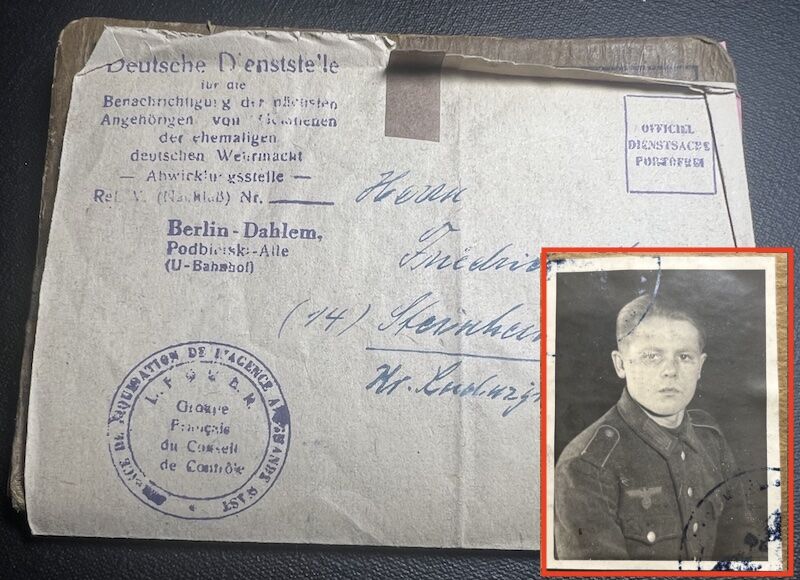 Deutsche Dienststelle
für die
Benachrichtigung der nächsten
Angehörigen von Gefallenen
der ehemaligen
deutschen Wehrmacht
— Abwicklungsstelle —
Ref. (Nachlaß) Nr.
Berlin-Dahlem,
Podbielski-Alle
(U-Bahnhof)
OFFICIEL
DIENSTSACHE
PORTOFREI
Herrn
Friedric
(14) Steinhei
Kr. Ludwigs
SERVICE DE LIQUIDATION DE L'AGENCE ALLEMANDE WAST
Groupe
Français
du Conseil
de Contrôle